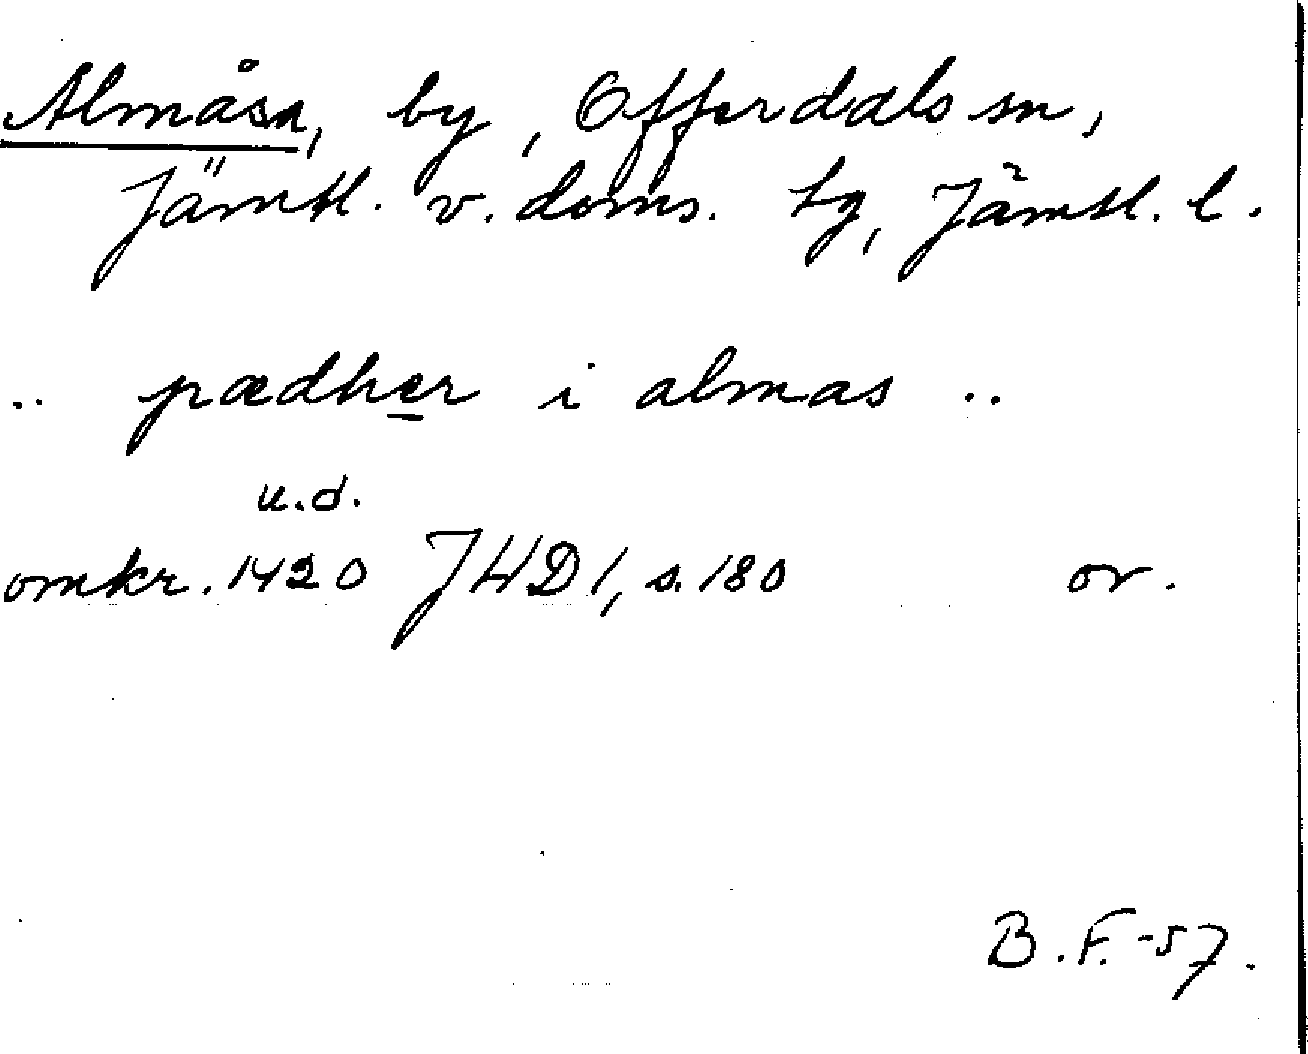 Almåsa, by, Offerdals sn,
Jämtl. v. doms. tg, Jämtl. l.
.. pædher i almas ..
u.d.
omkr. 1420 JHD 1, s. 180 or.
B. F. -57.